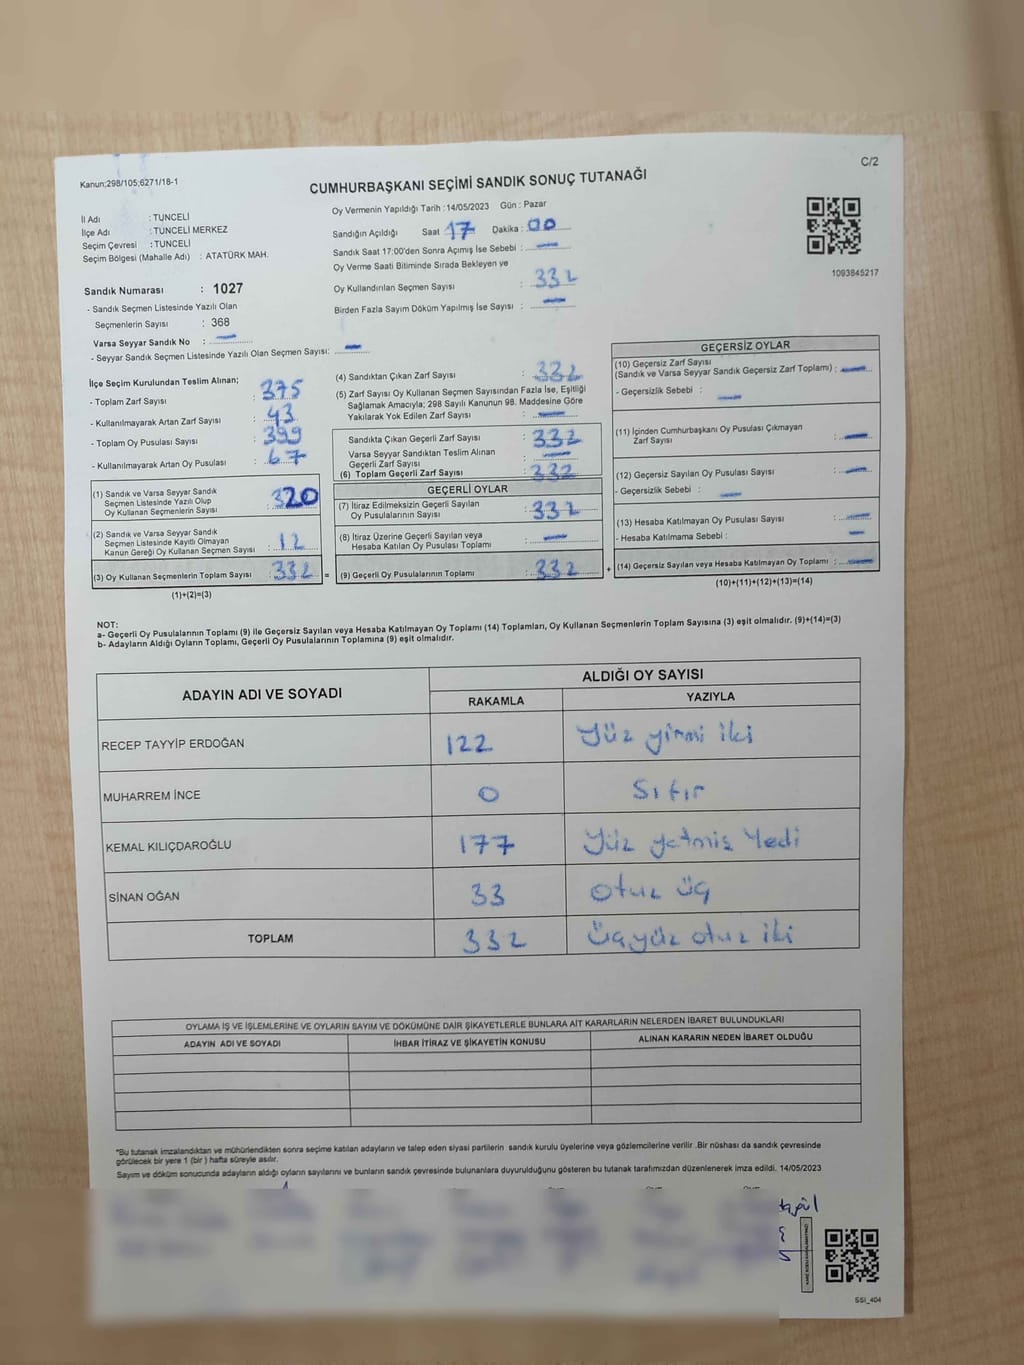 Kanun;298/105;6271/18-1
C/2
CUMHURBAŞKANI SEÇİMİ SANDIK SONUÇ TUTANAĞI
İl Adı : TUNCELİ
İlçe Adı : TUNCELİ MERKEZ
Seçim Çevresi : TUNCELİ
Seçim Bölgesi (Mahalle Adı) : ATATÜRK MAH.
Sandık Numarası : 1027
- Sandık Seçmen Listesinde Yazılı Olan
Seçmenlerin Sayısı : 368
Varsa Seyyar Sandık No : —
- Seyyar Sandık Seçmen Listesinde Yazılı Olan Seçmen Sayısı: —
Oy Vermenin Yapıldığı Tarih : 14/05/2023 Gün : Pazar
Sandığın Açıldığı Saat 17 Dakika : 00
Sandık Saat 17:00'den Sonra Açımış İse Sebebi : —
Oy Verme Saati Bitiminde Sırada Bekleyen ve
Oy Kullandırılan Seçmen Sayısı : 332
Birden Fazla Sayım Döküm Yapılmış İse Sayısı : —
1093845217
İlçe Seçim Kurulundan Teslim Alınan;
- Toplam Zarf Sayısı : 375
- Kullanılmayarak Artan Zarf Sayısı : 43
- Toplam Oy Pusulası Sayısı : 399
- Kullanılmayarak Artan Oy Pusulası : 67
(1) Sandık ve Varsa Seyyar Sandık
Seçmen Listesinde Yazılı Olup
Oy Kullanan Seçmenlerin Sayısı : 320
(2) Sandık ve Varsa Seyyar Sandık
Seçmen Listesinde Kayıtlı Olmayan
Kanun Gereği Oy Kullanan Seçmen Sayısı : 12
(3) Oy Kullanan Seçmenlerin Toplam Sayısı : 332 =
(1)+(2)=(3)
(4) Sandıktan Çıkan Zarf Sayısı : 332
(5) Zarf Sayısı Oy Kullanan Seçmen Sayısından Fazla İse, Eşitliği
Sağlamak Amacıyla; 298 Sayılı Kanunun 98. Maddesine Göre
Yakılarak Yok Edilen Zarf Sayısı : —
Sandıkta Çıkan Geçerli Zarf Sayısı : 332
Varsa Seyyar Sandıktan Teslim Alınan
Geçerli Zarf Sayısı : —
(6) Toplam Geçerli Zarf Sayısı : 332
GEÇERLİ OYLAR
(7) İtiraz Edilmeksizin Geçerli Sayılan
Oy Pusulalarının Sayısı : 332
(8) İtiraz Üzerine Geçerli Sayılan veya
Hesaba Katılan Oy Pusulası Toplamı : —
(9) Geçerli Oy Pusulalarının Toplamı : 332 +
GEÇERSİZ OYLAR
(10) Geçersiz Zarf Sayısı
(Sandık ve Varsa Seyyar Sandık Geçersiz Zarf Toplamı) : —
- Geçersizlik Sebebi : —
(11) İçinden Cumhurbaşkanı Oy Pusulası Çıkmayan
Zarf Sayısı : —
(12) Geçersiz Sayılan Oy Pusulası Sayısı : —
- Geçersizlik Sebebi : —
(13) Hesaba Katılmayan Oy Pusulası Sayısı : —
- Hesaba Katılmama Sebebi : —
(14) Geçersiz Sayılan veya Hesaba Katılmayan Oy Toplamı : —
(10)+(11)+(12)+(13)=(14)
NOT:
a- Geçerli Oy Pusulalarının Toplamı (9) ile Geçersiz Sayılan veya Hesaba Katılmayan Oy Toplamı (14) Toplamları, Oy Kullanan Seçmenlerin Toplam Sayısına (3) eşit olmalıdır. (9)+(14)=(3)
b- Adayların Aldığı Oyların Toplamı, Geçerli Oy Pusulalarının Toplamına (9) eşit olmalıdır.
ADAYIN ADI VE SOYADI
ALDIĞI OY SAYISI
RAKAMLA YAZIYLA
RECEP TAYYİP ERDOĞAN 122 Yüz yirmi iki
MUHARREM İNCE 0 Sıfır
KEMAL KILIÇDAROĞLU 177 Yüz yetmiş Yedi
SİNAN OĞAN 33 otuz üç
TOPLAM 332 üçyüz otuz iki
OYLAMA İŞ VE İŞLEMLERİNE VE OYLARIN SAYIM VE DÖKÜMÜNE DAİR ŞİKAYETLERLE BUNLARA AİT KARARLARIN NELERDEN İBARET BULUNDUKLARI
ADAYIN ADI VE SOYADI İHBAR İTİRAZ VE ŞİKAYETİN KONUSU ALINAN KARARIN NEDEN İBARET OLDUĞU
*Bu tutanak imzalandıktan ve mühürlendikten sonra seçime katılan adayların ve talep eden siyasi partilerin sandık kurulu üyelerine veya gözlemcilerine verilir .Bir nüshası da sandık çevresinde
görülecek bir yere 1 (bir ) hafta süreyle asılır.
Sayım ve döküm sonucunda adayların aldığı oyların sayılarını ve bunların sandık çevresinde bulunanlara duyurulduğunu gösteren bu tutanak tarafımızdan düzenlenerek imza edildi. 14/05/2023
SSI_404